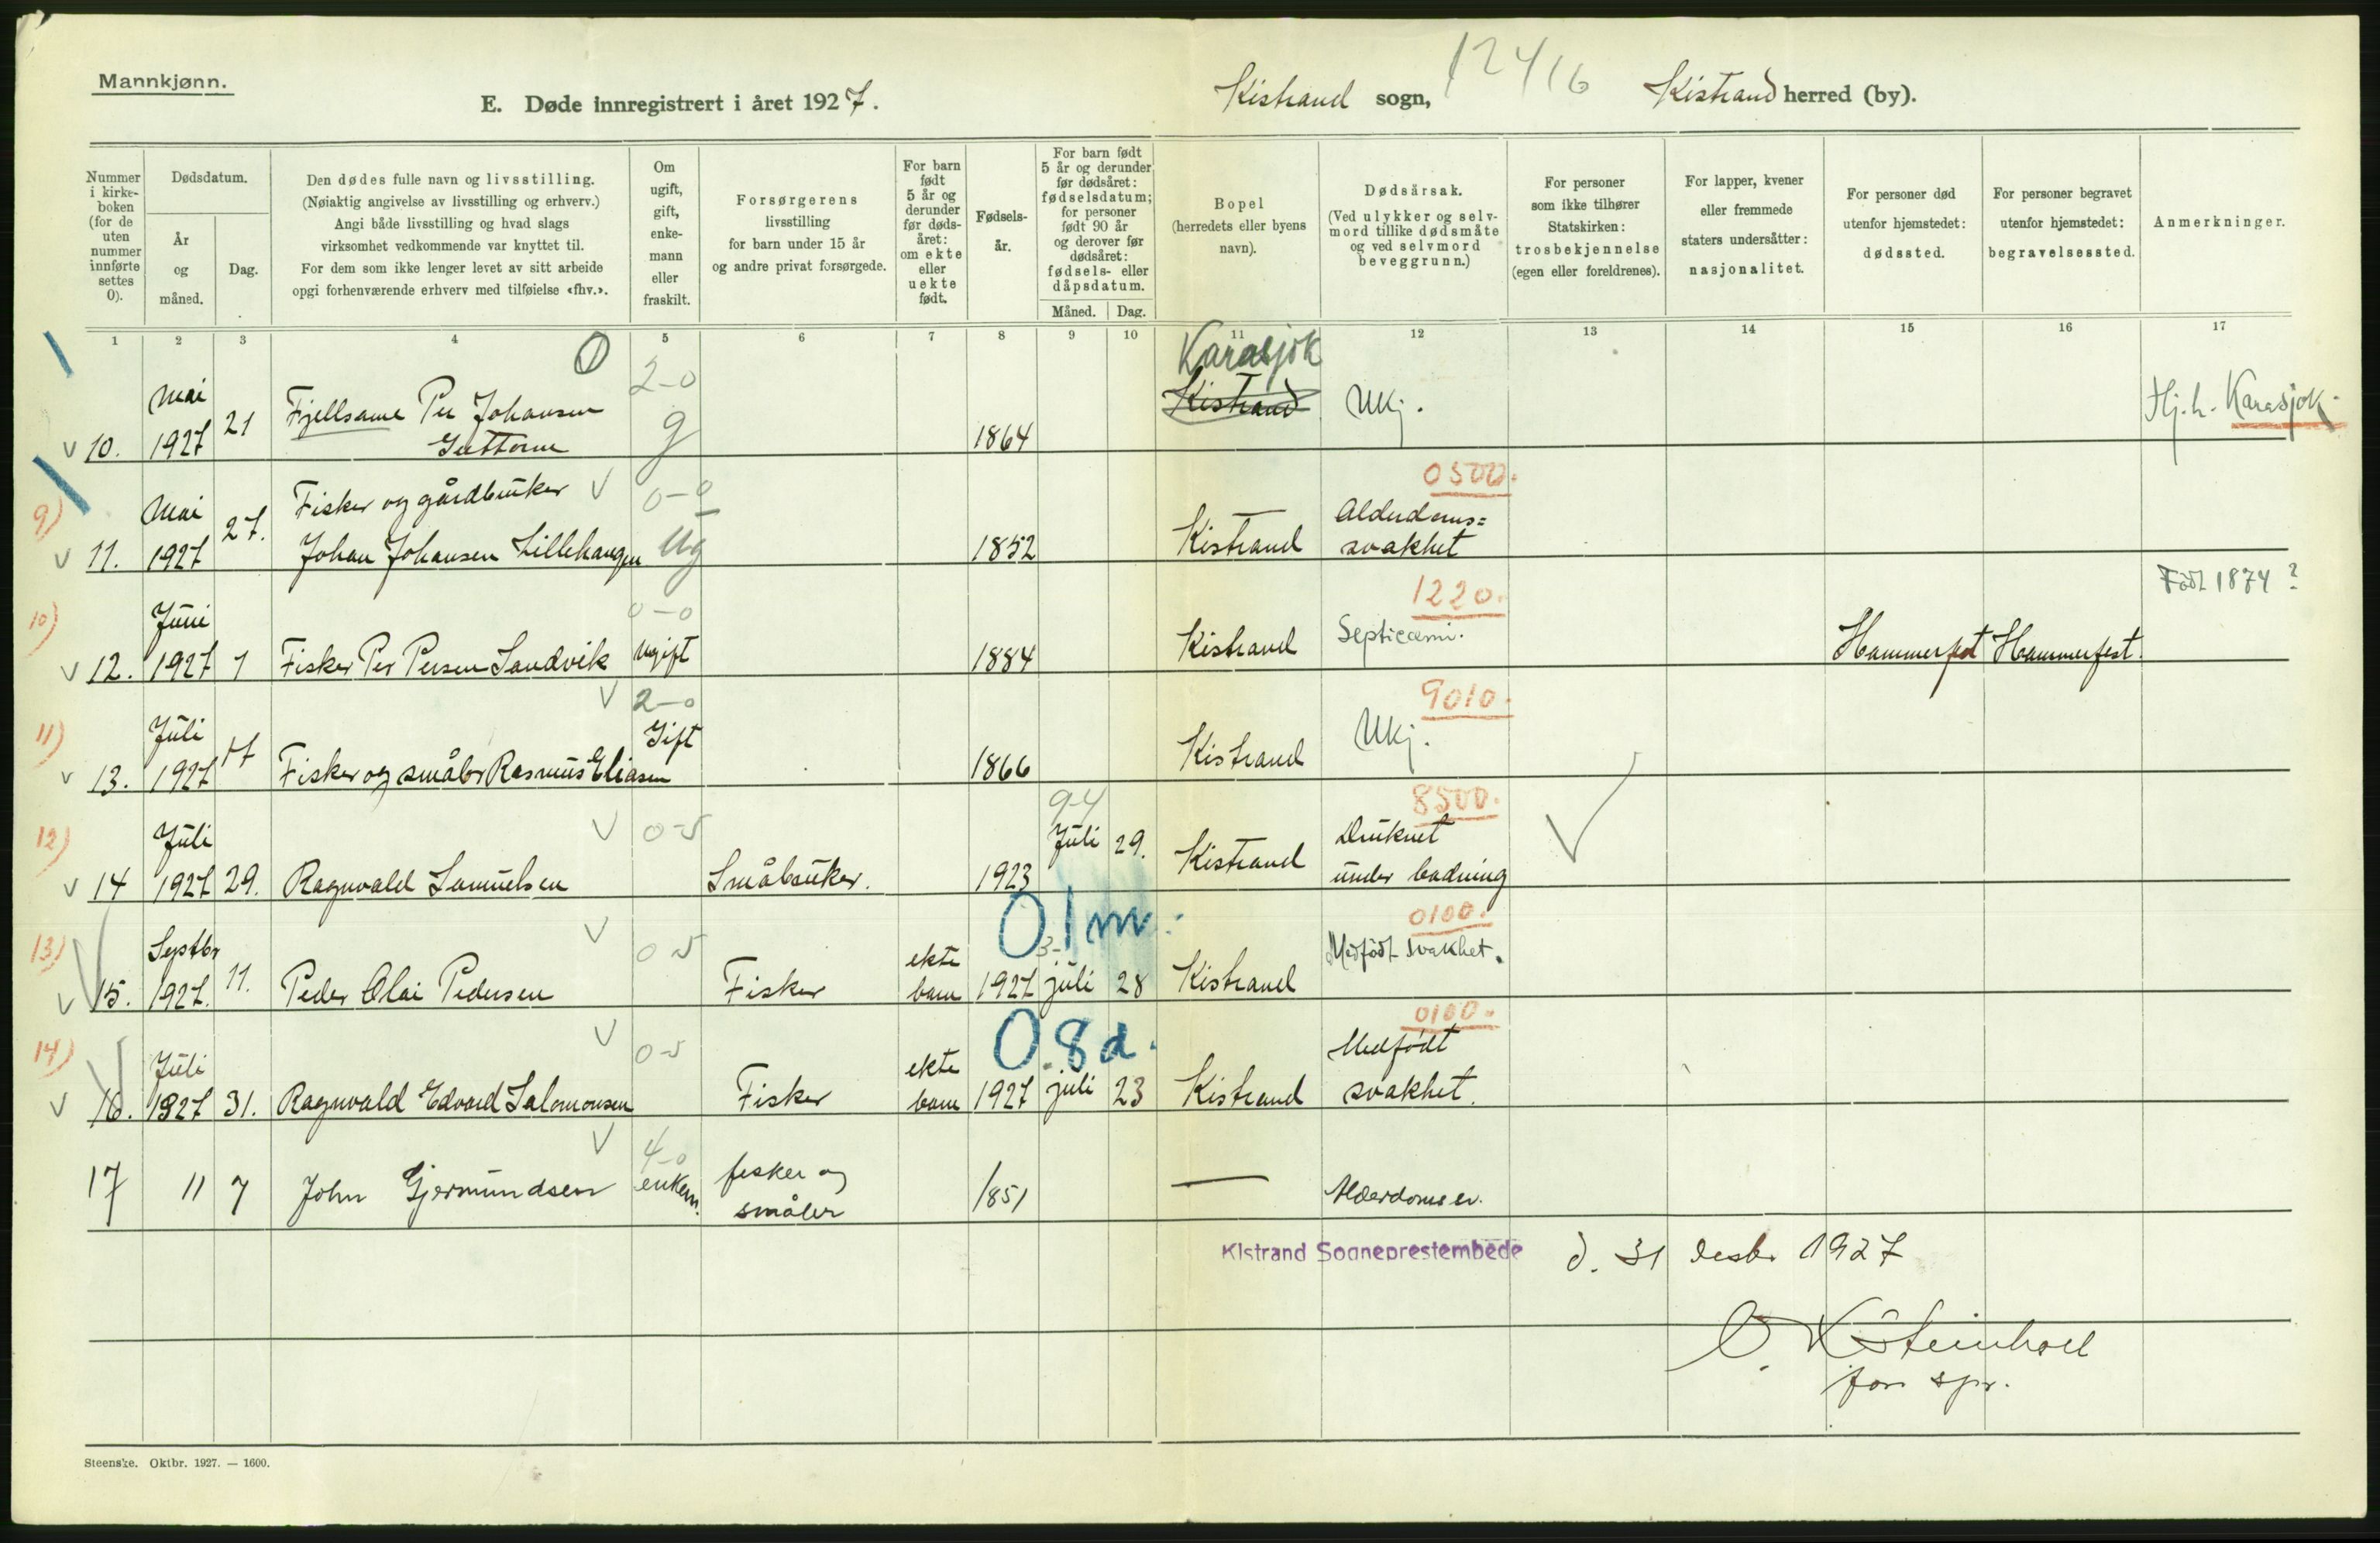 Mannkjønn.
E. Døde innregistrert i året 1927.
Kistrand sogn, 12416 Kistrand herred (by).
Nummer i kirke-boken (for de uten nummer innførte settes 0).
Dødsdatum.
År og måned.
Dag.
Den dødes fulle navn og livsstilling.
(Nøiaktig angivelse av livsstilling og erhverv.)
Angi både livsstilling og hvad slags
virksomhet vedkommende var knyttet til.
For dem som ikke lenger levet av sitt arbeide
opgi forhenværende erhverv med tilføielse «fhv.».
Om ugift, gift, enke-mann eller fraskilt.
Forsørgerens
livsstilling
for barn under 15 år
og andre privat forsørgede.
For barn født 5 år og derunder før døds-året: om ekte eller uekte født.
Fødsels-år.
For barn født 5 år og derunder før dødsåret: fødselsdatum; for personer født 90 år og derover før dødsåret: fødsels- eller dåpsdatum.
Måned.
Dag.
Bopel
(herredets eller byens
navn).
Dødsårsak.
(Ved ulykker og selv-
mord tillike dødsmåte
og ved selvmord
beveggrunn.)
For personer
som ikke tilhører
Statskirken:
trosbekjennelse
(egen eller foreldrenes).
For lapper, kvener
eller fremmede
staters undersåtter:
nasjonalitet.
For personer død
utenfor hjemstedet:
dødssted.
For personer begravet
utenfor hjemstedet:
begravelsessted.
Anmerkninger.
1 2 3 4 5 6 7 8 9 10 11 12 13 14 15 16 17
0 2-0 Karasjok
10. Mai 1927 21 Fjellsame Per Johansen Guttorm g 1864 Kistrand Ukj. Hj.h. Karasjok.
9) 0-0 0500.
11. Mai 1927 27. Fisker og gårdbruker Johan Johansen Lillehaugen ug 1852 Kistrand Alderdoms=svakhet
10) 0-0 1220. Født 1874?
12. Juni 1927 7 Fisker Per Persen Sandvik ugift 1884 Kistrand Septicæmi. Hammerfest Hammerfest.
11) 2-0 9010.
13. Juli 1927 17 Fisker og småbr Rasmus Eliasen Gift 1866 Kistrand Ukj.
12) 0-5 94 8500.
14 Juli 1927 29. Ragnvald Samuelsen Småbruker. 1923 Juli 29. Kistrand Druknet under badning
13) 0 5 0 1 m. 0100.
15. Septbr 1927. 11. Peder Olai Pedersen Fisker ekte barn 1927 juli 28 Kistrand Medfødt svakhet.
14) 0-5 0.8 d. 0100.
16. Juli 1927 31. Ragnvald Edvard Salomonsen Fisker ekte barn 1927 juli 23 Kistrand Medfødt svakhet.
4-0
17 11 7 John Gjermundsen enkem. fisker og småbr 1851 — Alderdomssv.
Kistrand Sogneprestembede d. 31 desbr 1927
O. K Steinholt
for spr.
Steenske. Oktbr. 1927. — 1600.